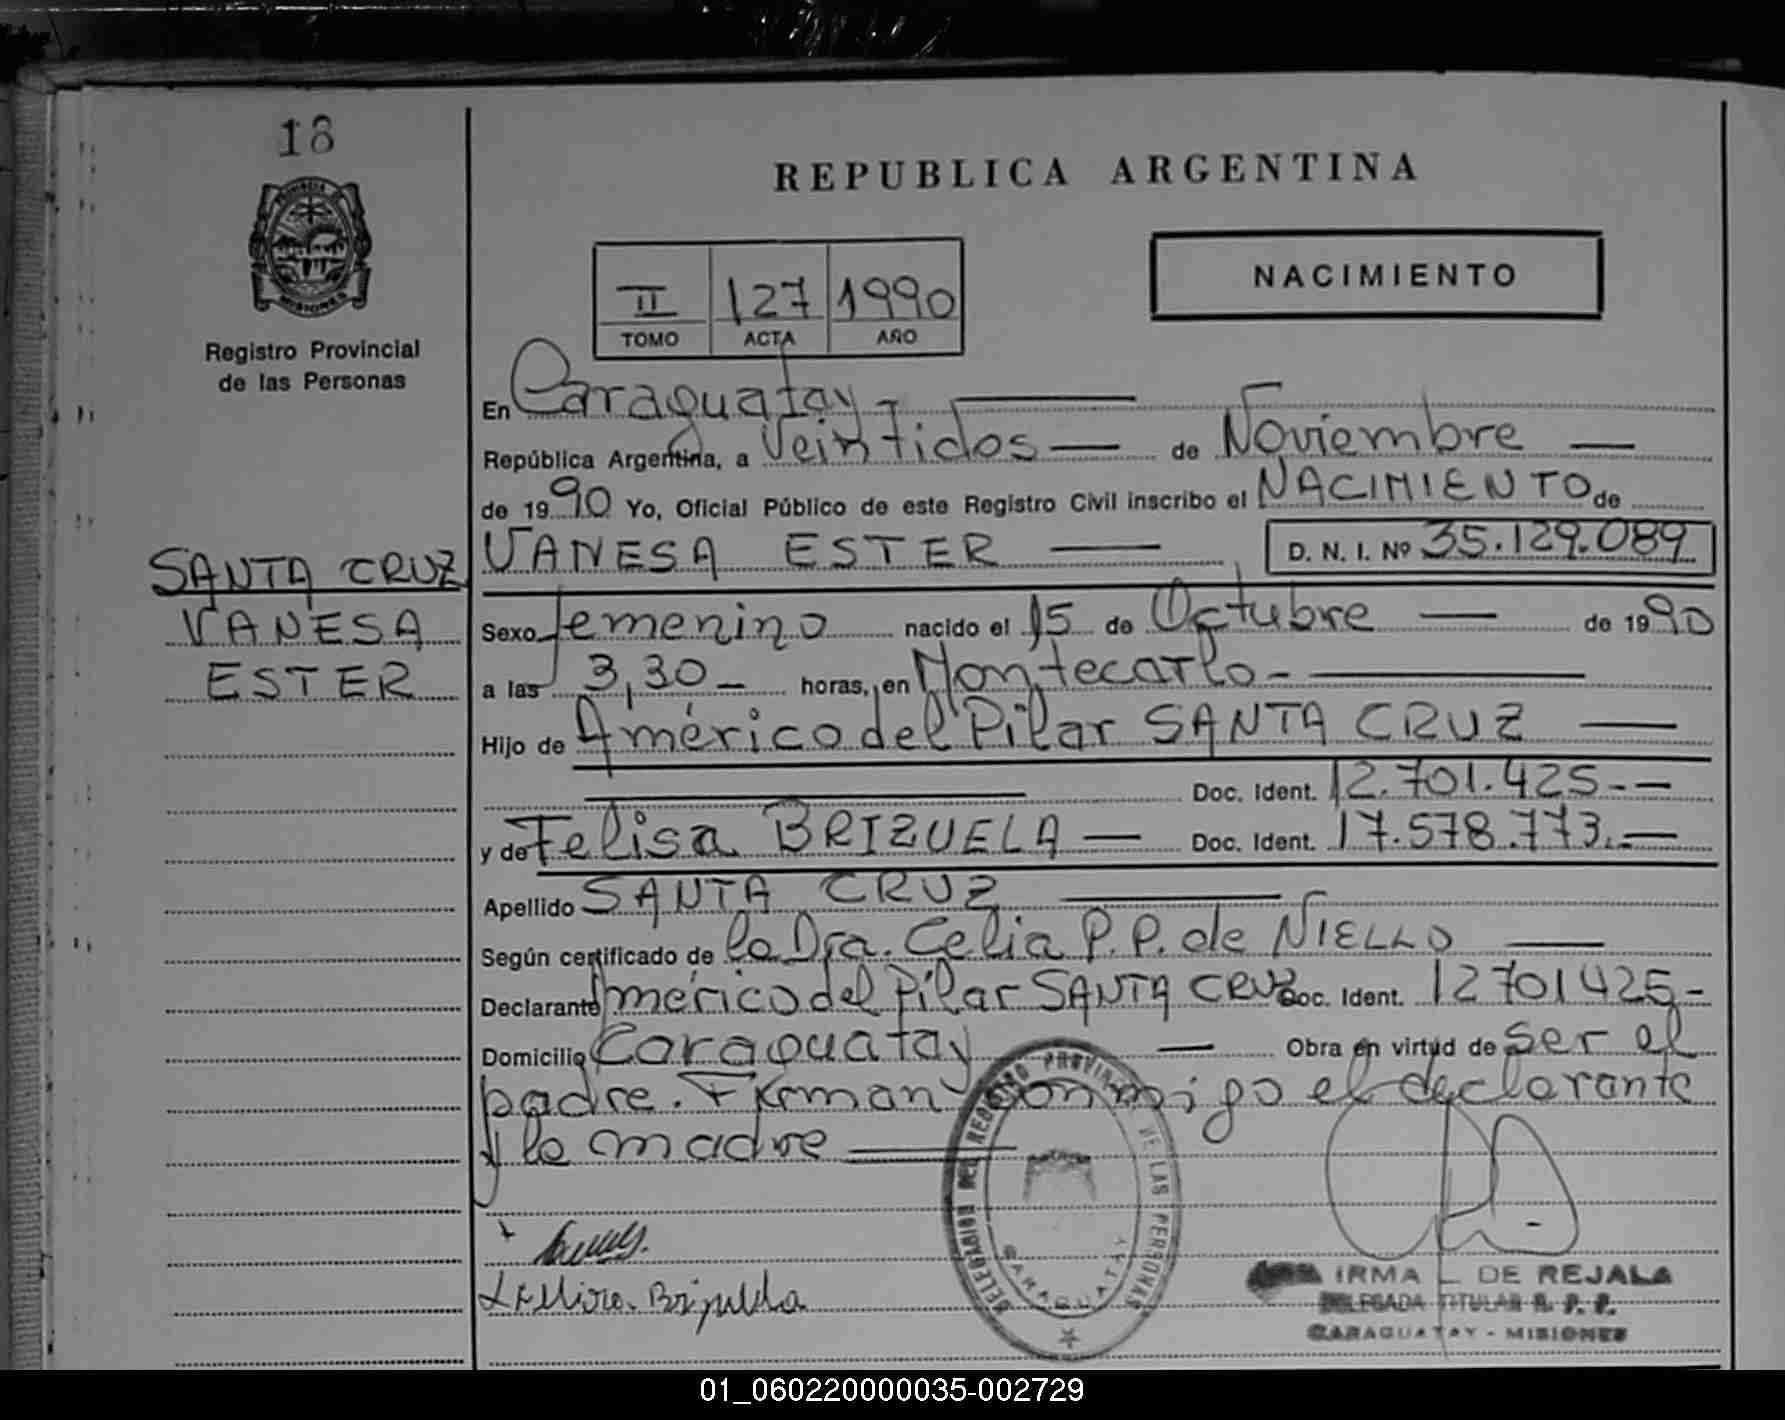 18
PROVINCIA
MISIONES
Registro Provincial
de las Personas
SANTA CRUZ
VANESA
ESTER
REPUBLICA ARGENTINA
NACIMIENTO
II 127 1990
TOMO ACTA AÑO
En Caraguatay
República Argentina, a Veintidos de Noviembre
de 1990 Yo, Oficial Público de este Registro Civil inscribo el NACIMIENTO de
VANESA ESTER D. N. I. Nº 35.129.089
Sexo femenino nacido el 15 de Octubre de 1990
a las 3,30 horas, en Montecarlo
Hijo de Américo del Pilar SANTA CRUZ
Doc. Ident. 12.701.425
y de Felisa BRIZUELA Doc. Ident. 17.578.773
Apellido SANTA CRUZ
Según certificado de la Dra. Celia P.P. de NIELLO
Declarante Américo del Pilar SANTA CRUZ Doc. Ident. 12701425
Domicilio Caraguatay Obra en virtud de ser el
padre. Firman conmigo el declarante
y la madre
DELEGACION DEL REGISTRO PROVINCIAL DE LAS PERSONAS
CARAGUATAY
IRMA L. DE REJALA
DELEGADA TITULAR R. P. P.
CARAGUATAY - MISIONES
01_060220000035-002729